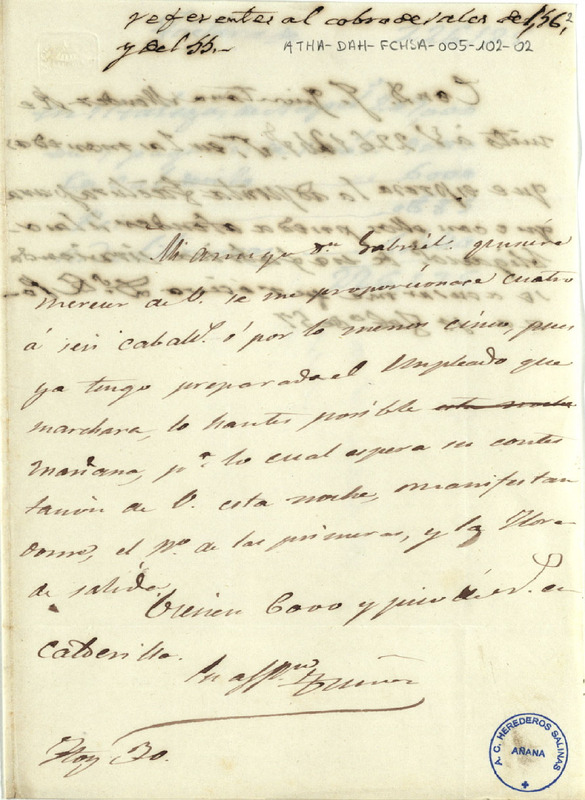 referentes al cobro de sales del 56,
y del 55.-
ATHA-DAH-FCHSA-005-102-02
Mi amigo Dn Gabriel. quisiera
merecer de V. se me proporcionase cuatro
á seis caball.s ó por lo menos cinco, pues
ya tengo preparado el Empleado que
marchara, lo hantes posible esta noche
mañana, p.a lo cual espera su contes
tacion de V. esta noche, manifestan
dome, el no. de las primeras, y la Hora
de salida.
Vienen 6000 y pico de r.s en
calderilla.
Su aff.mo
Hoy 30.
A. C. HEREDEROS SALINAS
AÑANA